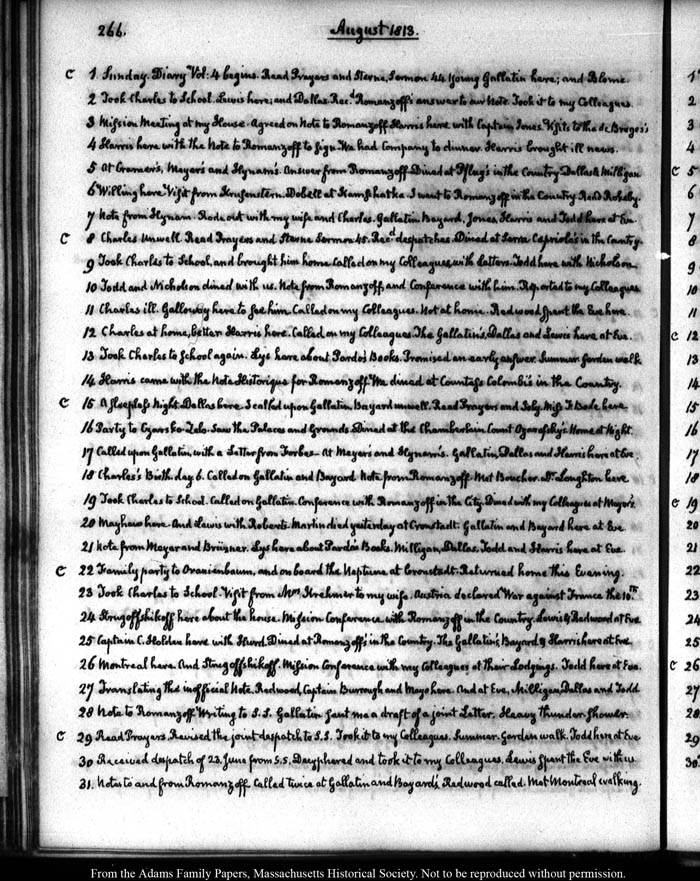 266.
August 1813.
C 1. Sunday. Diary Vol: 4 begins. Read Prayers and Sterne, Sermon 44. Young Gallatin here; and Blome.
2 Took Charles to School. Lewis here; and Dallas. Recd. Romanzoff's answer to our Note. Took it to my Colleagues.
3 Mission Meeting at my House. Agreed on Note to Romanzoff. Harris here with Captain Jones. Visit to the de Bray's
4 Harris here with the Note to Romanzoff to sign. We had Company to dinner. Harris brought ill news.
5 At Cramer's, Meyer's and Hynam's. Answer from Romanzoff. Dined at Pflug's in the Country. Dallas & Milligan
6 Willing here. Visit from Krusenstern. Dobell at Kamschatka. I went to Romanzoff in the Country. Read Rokeby.
7 Note from Hynam. Rode out with my wife and Charles. Gallatin, Bayard, Jones, Harris and Todd here at Eve.
C 8 Charles Unwell. Read Prayers and Sterne Sermon 45. Recd. despatches. Dined at Serra Capriola's in the Country.
9 Took Charles to School, and brought him home. Called on my Colleagues, with Letters. Todd here with Nicholson
10 Todd and Nicholson dined with us. Note from Romanzoff, and Conference with him. Reported to my Colleagues
11 Charles ill. Galloway here to see him. Called on my Colleagues. Not at home. Redwood spent the Eve here.
12 Charles at home, better. Harris here. Called on my Colleagues. The Gallatin's, Dallas and Lewis here at Eve.
13 Took Charles to School again. Lys here about Pardo's Books. Promised an early answer. Summer Garden walk
14 Harris came with the Note Historique for Romanzoff. We dined at Countess Colombi's in the Country.
C 15 A sleepless Night. Dallas here. I called upon Gallatin. Bayard unwell. Read Prayers and Miss Bode here.
16 Party to Czarsko-Zelo. Saw the Palaces and Grounds. Dined at the Chamberlain Count Ozarofsky's. Home at Night.
17 Called upon Gallatin, with a Letter from Forbes. At Meyer's and Hynam's. Gallatin, Dallas and Harris here at Eve.
18 Charles's Birth-day 6. Called on Gallatin and Bayard. Note from Romanzoff. Met Boucher. Dr. Loughton here
19 Took Charles to School. Called on Gallatin. Conference with Romanzoff in the City. Dined with my Colleagues at Meyer's.
20 Mayhew here. And Lewis with Roberts. Martin died yesterday at Cronstadt. Gallatin and Bayard here at Eve.
21 Note from Meyer and Brüxner. Lys here about Pardo's Books. Milligan, Dallas, Todd and Harris here at Eve.
C 22 Family party to Oranienbaum, and on board the Neptune at Cronstadt. Returned home this Evening.
23 Took Charles to School. Visit from Mrs Krehmer to my wife. Austria declared War against France the 10.th
24 Strugoffshikoff here about the house. Mission Conference with Romanzoff in the Country. Lewis & Redwood at Eve
25 Captain C. Holden here with Hurd. Dined at Romanzoff's in the Country. The Gallatin's, Bayard & Harris here at Eve
26 Montreal here. And Strugoffshikoff. Mission Conference with my Colleagues at their Lodgings. Todd here at Eve.
27 Translating the inofficial Note. Redwood, Captain Burrough and Mayo here. And at Eve, Milligan, Dallas and Todd
28 Note to Romanzoff. Writing to S.S. Gallatin sent me a draft of a joint Letter. Heavy thunder Shower.
C 29 Read Prayers. Revised the joint despatch to S.S. Took it to my Colleagues. Summer Garden walk. Todd here at Eve
30 Received despatch of 23. June from S.S. Decyphered and took it to my Colleagues. Lewis spent the Eve with us
31. Notes to and from Romanzoff. Called twice at Gallatin and Bayard's. Redwood called. Met Montreal walking.
From the Adams Family Papers, Massachusetts Historical Society. Not to be reproduced without permission.